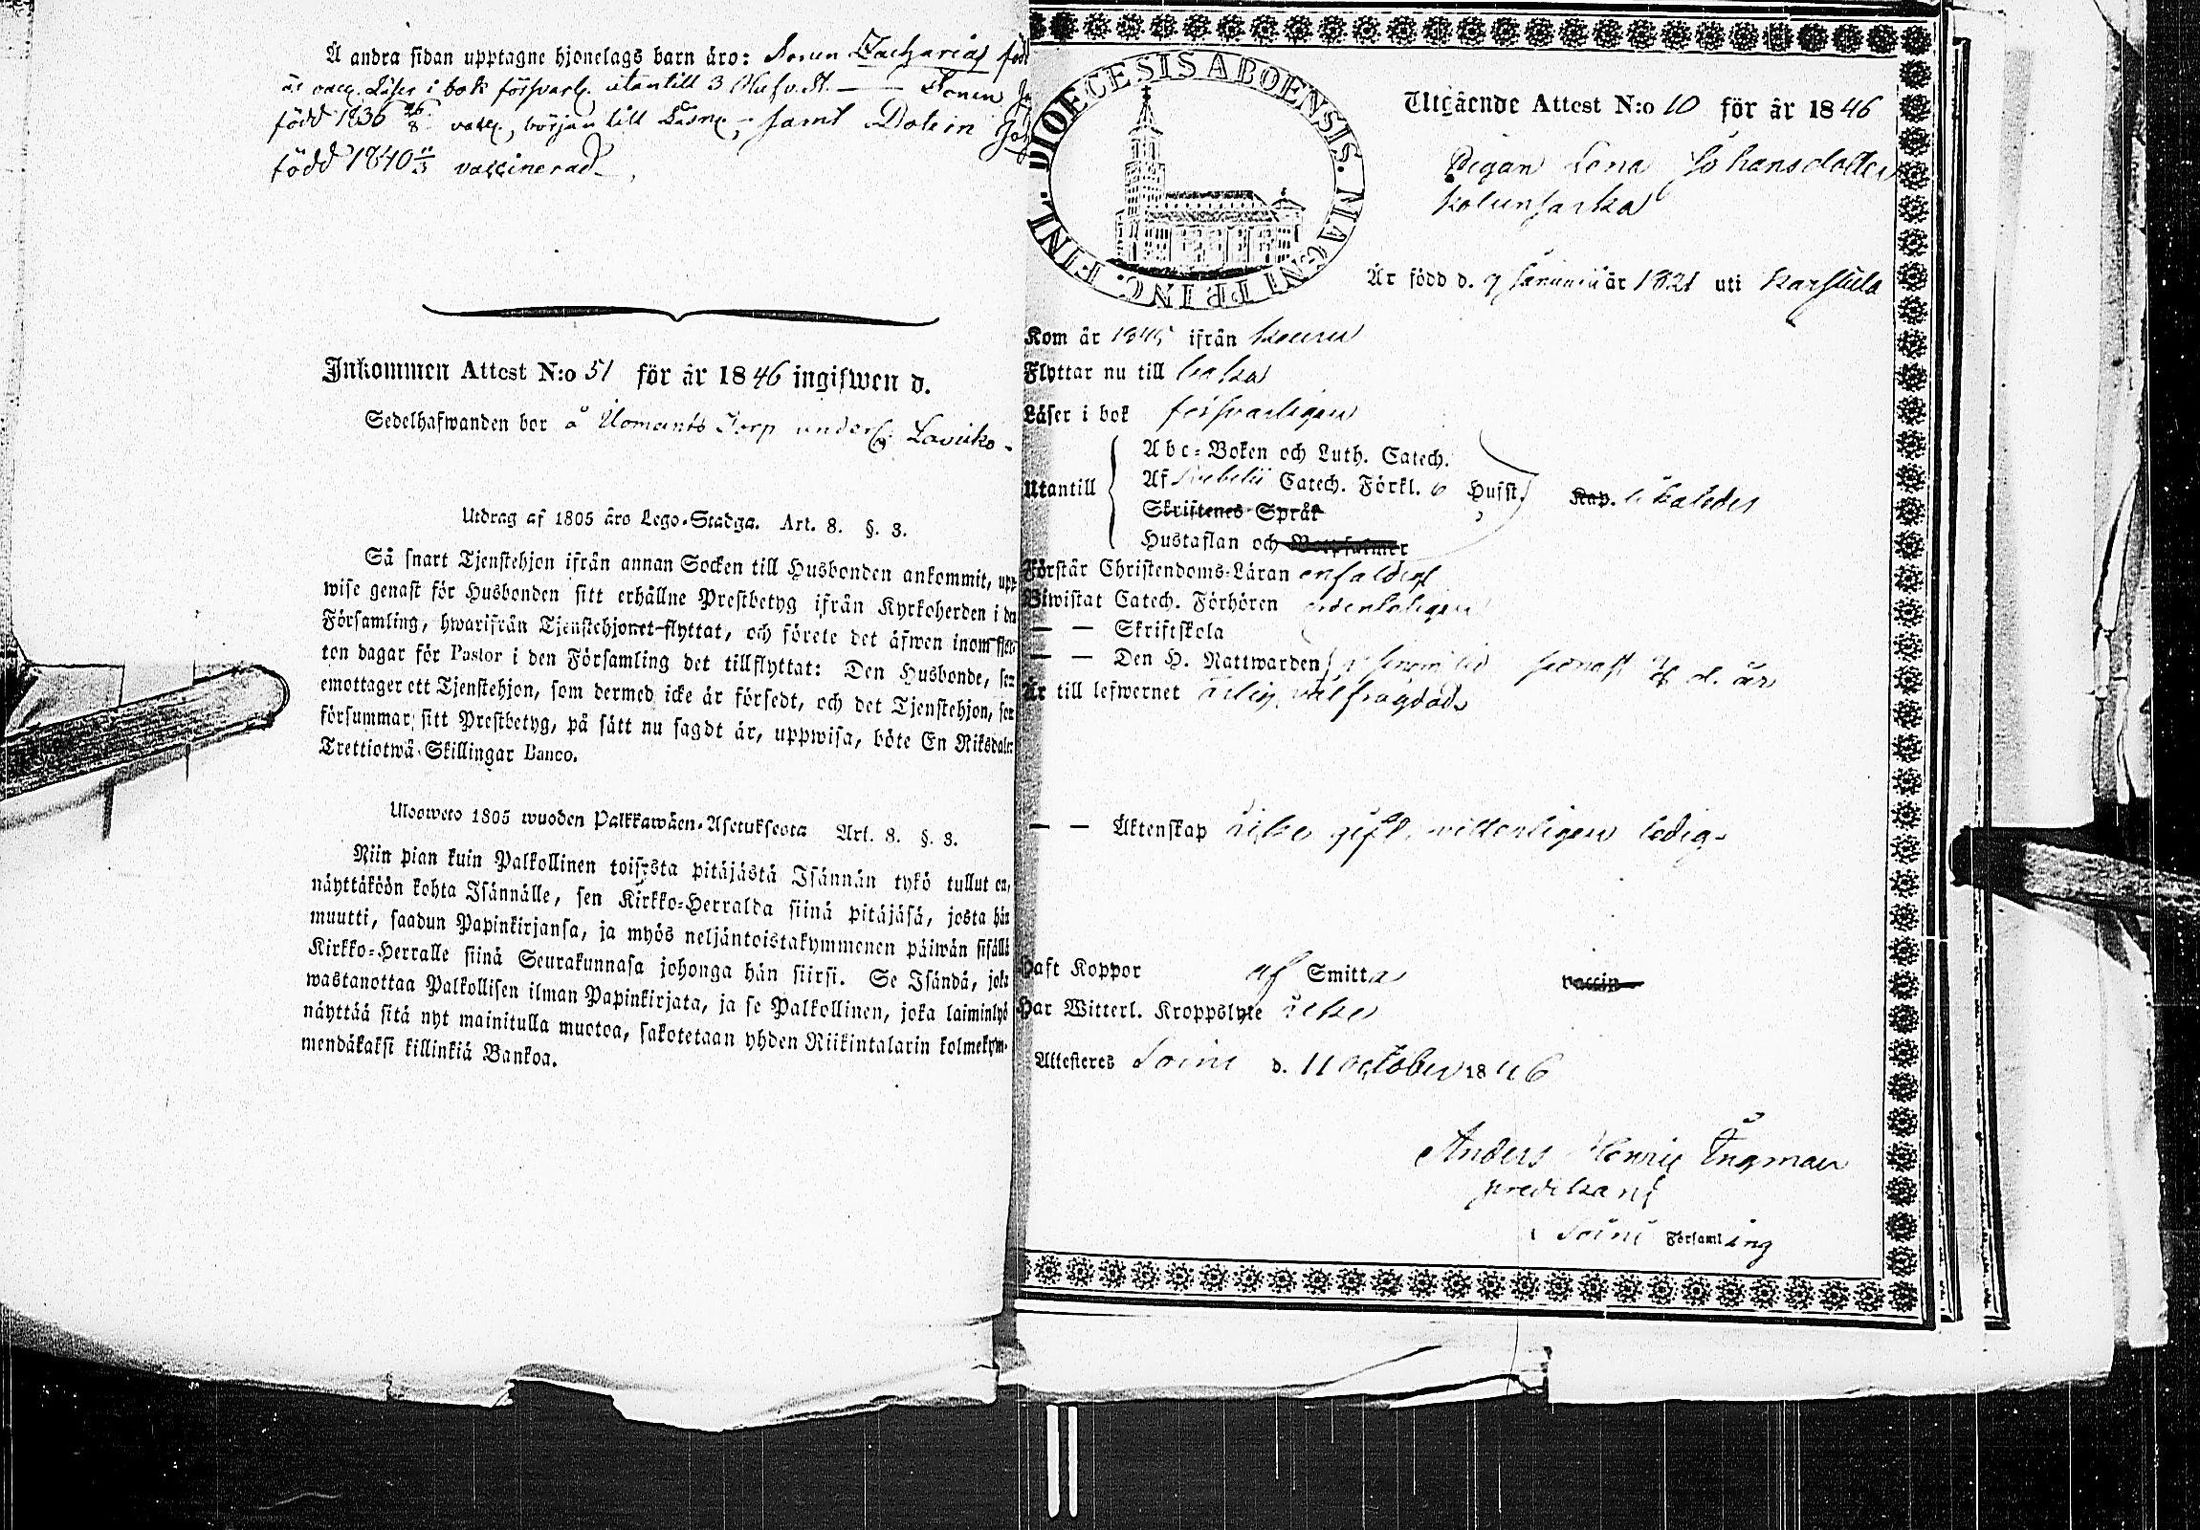 Å andra sidan upptagne hjonelags barn äro: Sonen Zacharias född
är vacc. Läser i bok försvarl. utantill 3 Hufv. St. — — Sonen
född 1836 26/8 vacc., börjar till Läsn., samt Dotern
född 1840 11/3 vaccinerad,
Inkommen Attest N:o 51 för år 1846 ingifwen d.
Sedelhafwanden bor å Torp under
Utdrag af 1805 års Lego-Stadga. Art. 8. §. 3.
Så snart Tjenstehjon ifrån annan Socken till Husbonden ankommit, upp-
wise genast för Husbonden sitt erhållne Prestbetyg ifrån Kyrkoherden i den
Församling, hwarifrån Tjenstehjonet flyttat, och förete det äfwen inom fjor-
ton dagar för Pastor i den Församling det tillflyttat: Den Husbonde, som
emottager ett Tjenstehjon, som dermed icke är försedt, och det Tjenstehjon, som
försummar sitt Prestbetyg, på sätt nu sagdt är, uppwisa, böte En Riksdaler
Trettiotwå Skillingar Banco.
Ulosweto 1805 wuoden Palkkawäen-Asetuksesta Art. 8. §. 3.
Niin pian kuin Palkollinen toisesta pitäjästä Isännän tykö tullut on,
näyttäköön kohta Isännälle, sen Kirkko-Herralda siinä pitäjäsä, josta hän
muutti, saadun Papinkirjansa, ja myös neljäntoistakymmenen päiwän sisällä
Kirkko-Herralle siinä Seurakunnasa johonga hän siirsi. Se Isändä, joka
wastanottaa Palkollisen ilman Papinkirjata, ja se Palkollinen, joka laiminlyö
näyttää sitä nyt mainitulla muotoa, sakotetaan yhden Riikintalarin kolmekym-
mendäkaksi killinkiä Bankoa.
DIOECESIS ABOENSIS. MAGNI PRINC. FINL.
Utgående Attest N:o 10 för år 1846
Pigan Lena Johansdotter
Är född d. 9 Januari år 1821 uti Karstula
Kom år 1845 ifrån Keuru
Flyttar nu till
Läser i bok försvarligen
Utantill
Abc-Boken och Luth. Catech.
Af Svebelii Catech. Förkl. 6 Hufst. Kap. likaledes
Skriftenes Språk
Hustaflan och
Förstår Christendoms-Läran enfaldigt
Biwistat Catech. Förhören ordenteligen
— — Skriftskola
— — Den H. Nattwarden senast d. år
Är till lefwernet ärlig, välfrägdad
— — Äktenskap icke gift, vitterligen ledig.
Haft Koppor af Smitta vaccin
Har Witterl. Kroppslyte icke
Attesteras Soini d. 11 october 1846
Anders Henric Engman
predikant
i Soini Församling